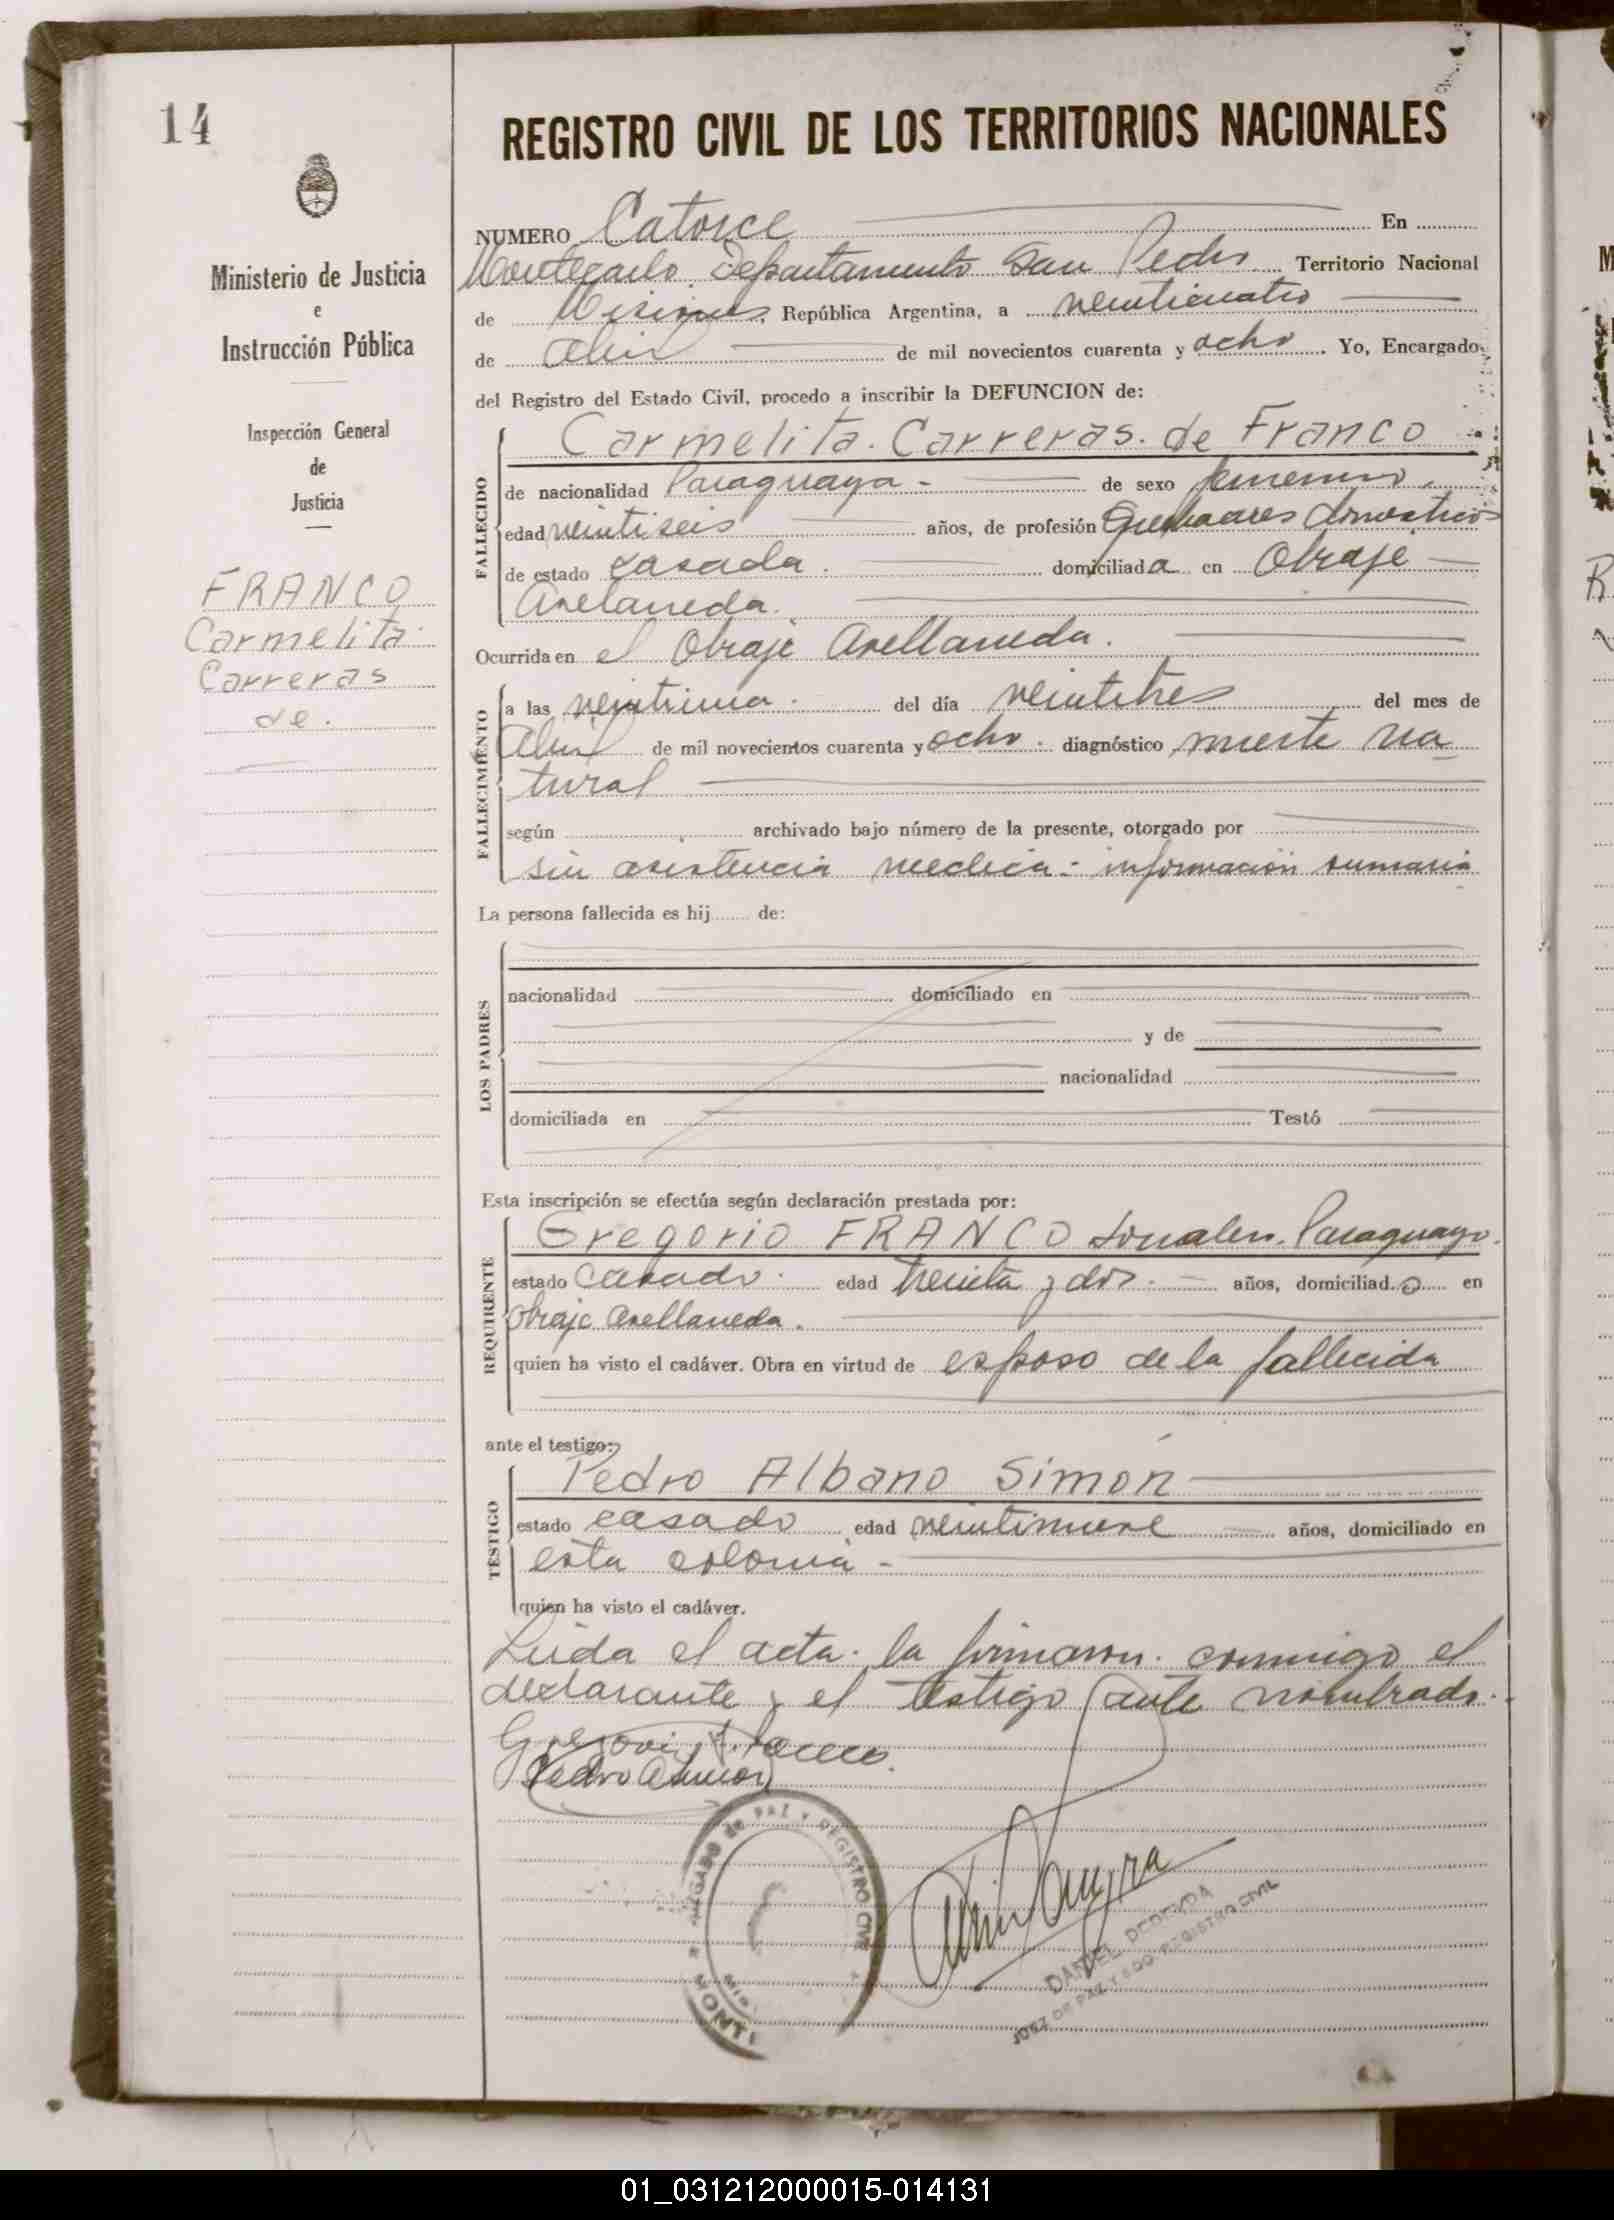 14
Ministerio de Justicia
e
Instrucción Pública
Inspección General
de
Justicia
FRANCO
Carmelita
Carreras
de.
REGISTRO CIVIL DE LOS TERRITORIOS NACIONALES
NUMERO Catorce En
Montecarlo Departamento San Pedro Territorio Nacional
de Misiones, República Argentina, a veinticuatro
de Abril de mil novecientos cuarenta y ocho. Yo, Encargado
del Registro del Estado Civil, procedo a inscribir la DEFUNCION de:
FALLECIDO
Carmelita. Carreras. de Franco
de nacionalidad Paraguaya - de sexo femenino.
edad veintiseis años, de profesión Quehaceres domesticos
de estado casada. domiciliada en Obraje
Avelaneda.
Ocurrida en el Obraje Avellaneda.
FALLECIMIENTO
a las veintiuna. del día veintitres del mes de
Abril de mil novecientos cuarenta y ocho. diagnóstico muerte na
tural
según archivado bajo número de la presente, otorgado por
sin asistencia medica - información sumaria
La persona fallecida es hij de:
LOS PADRES
nacionalidad domiciliado en
y de
nacionalidad
domiciliada en Testó
Esta inscripción se efectúa según declaración prestada por:
REQUIRENTE
Gregorio FRANCO Paraguayo.
estado casado. edad treinta y dos. años, domiciliado en
Obraje Avellaneda.
quien ha visto el cadáver. Obra en virtud de esposo de la fallecida
ante el testigo:
TESTIGO
Pedro Albano Simón
estado casado edad veintinueve años, domiciliado en
esta colonia -
quien ha visto el cadáver.
Leida el acta. la firmaron. conmigo el
declarante y el testigo ante nombrado.
Gregorio Franco.
Pedro A Simon
JUZGADO de PAZ Y REGISTRO CIVIL
MONTE
DANIEL
JUEZ DE PAZ Y EDO. REGISTRO CIVIL
01_031212000015-014131